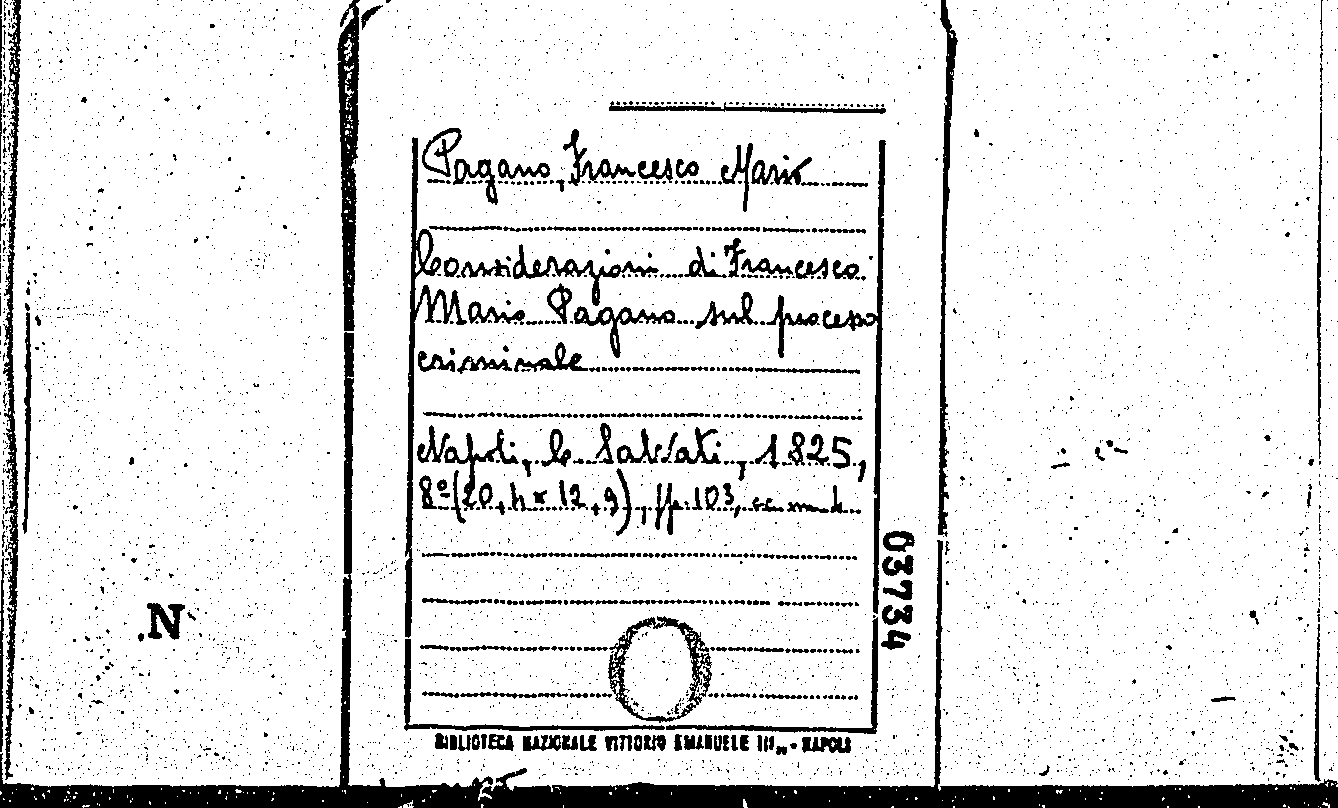 Pagano, Francesco Mario
Considerazioni di Francesco
Mario Pagano sul processo
criminale
Napoli, C. Salvati, 1825,
8º (20,4 x 12,9), pp. 103,
03734
N.
BIBLIOTECA NAZIONALE VITTORIO EMANUELE III - NAPOLI